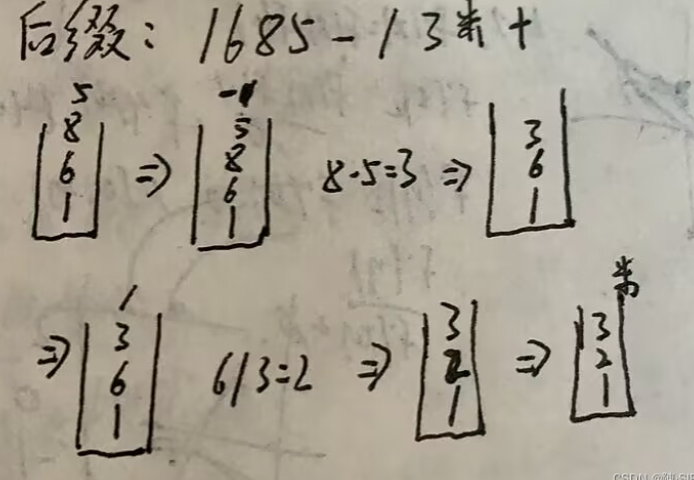 后缀: 1685-/3*+
5
8
6
1
⇒
-
5
8
6
1
8-5=3 ⇒
3
6
1
⇒
/
3
6
1
6/3=2 ⇒
3
2
1
⇒
*
3
2
1